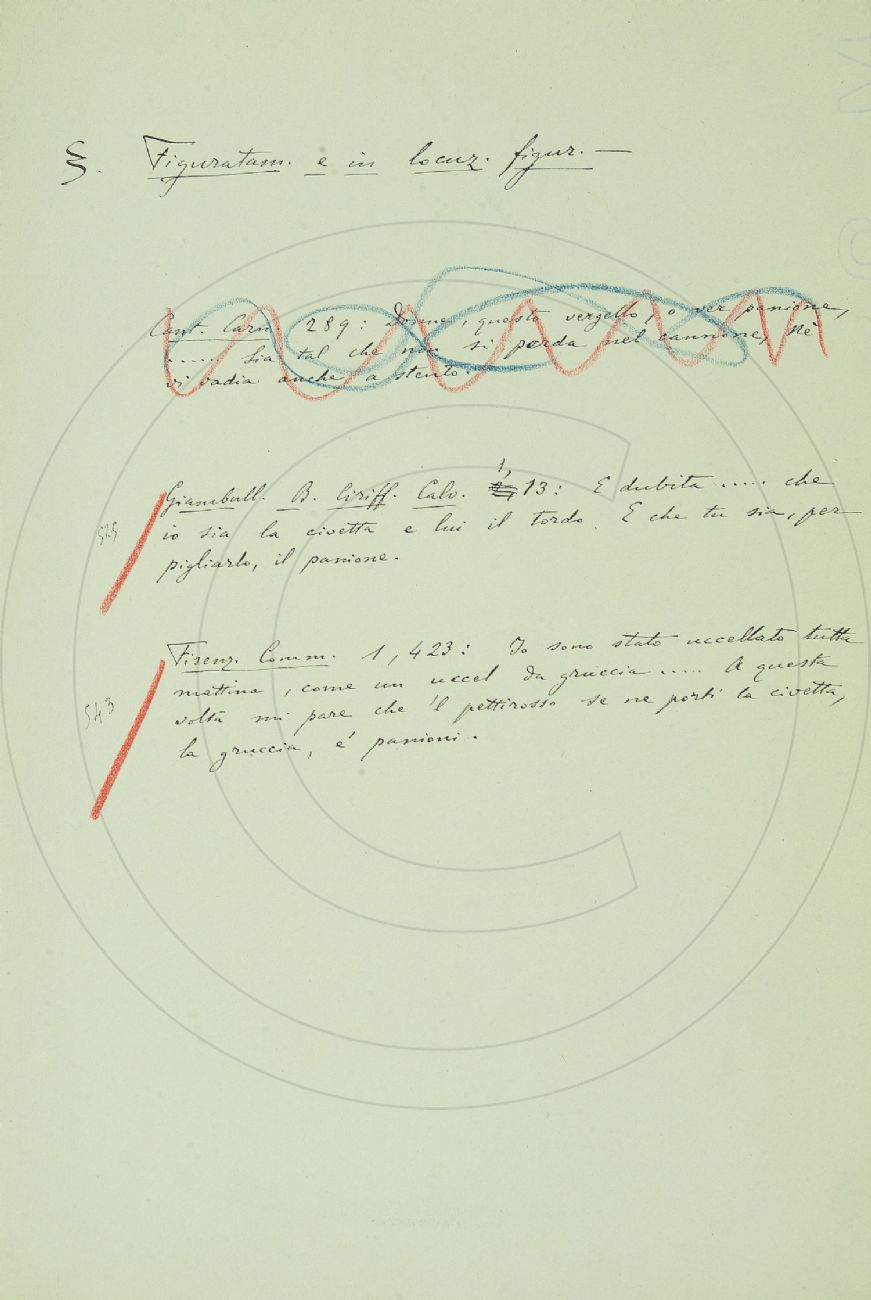 §. Figuratam. e in locuz. figur. —
Cant. Carn. 289: Donne, questo vergello, o ver panione,
..... Sia tal che non si perda nel cannone, Nè
vi vadia anche a stento.
1,
Giambull. B. Ciriff. Calv. 13: E dubita ..... che
525
io sia la civetta e lui il tordo. E che tu sia, per
pigliarlo, il panione.
Firenz. Comm. 1, 423: Io sono stato uccellato tutta
mattina, come un uccel da gruccia ..... A questa
543
volta mi pare che 'l pettirosso se ne porti la civetta,
la gruccia, e' panioni.